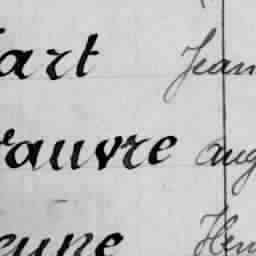 art Jean
auvre aug
eune Hen